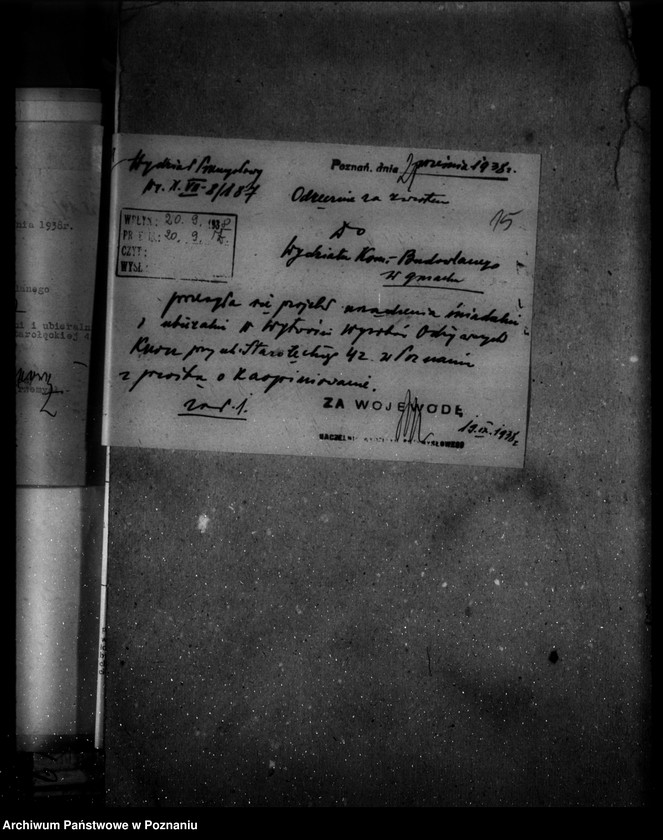 Wydział Przemysłowy
Nr. X. VII-8/187
Poznań, dnia września 1938 r.
Odręcznie za zwrotem
15
WPŁYN.: 20. 9. 1938
20. 9.
CZYT:
WYSŁ:
Do
Wydziału Kom.-Budowlanego
w gmachu
przesyła się projekt urządzenia śniadalni
i ubieralni w Wytwórni Wyrobów Odżywczych
Knorr przy ul. Starołęckiej 42 w Poznaniu
z prośbą o zaopiniowanie.
zał. 1.
ZA WOJEWODĘ
19.IX.1938 r.
nia 1938r.
i i ubieraln
arołęckiej
Archiwum Państwowe w Poznaniu